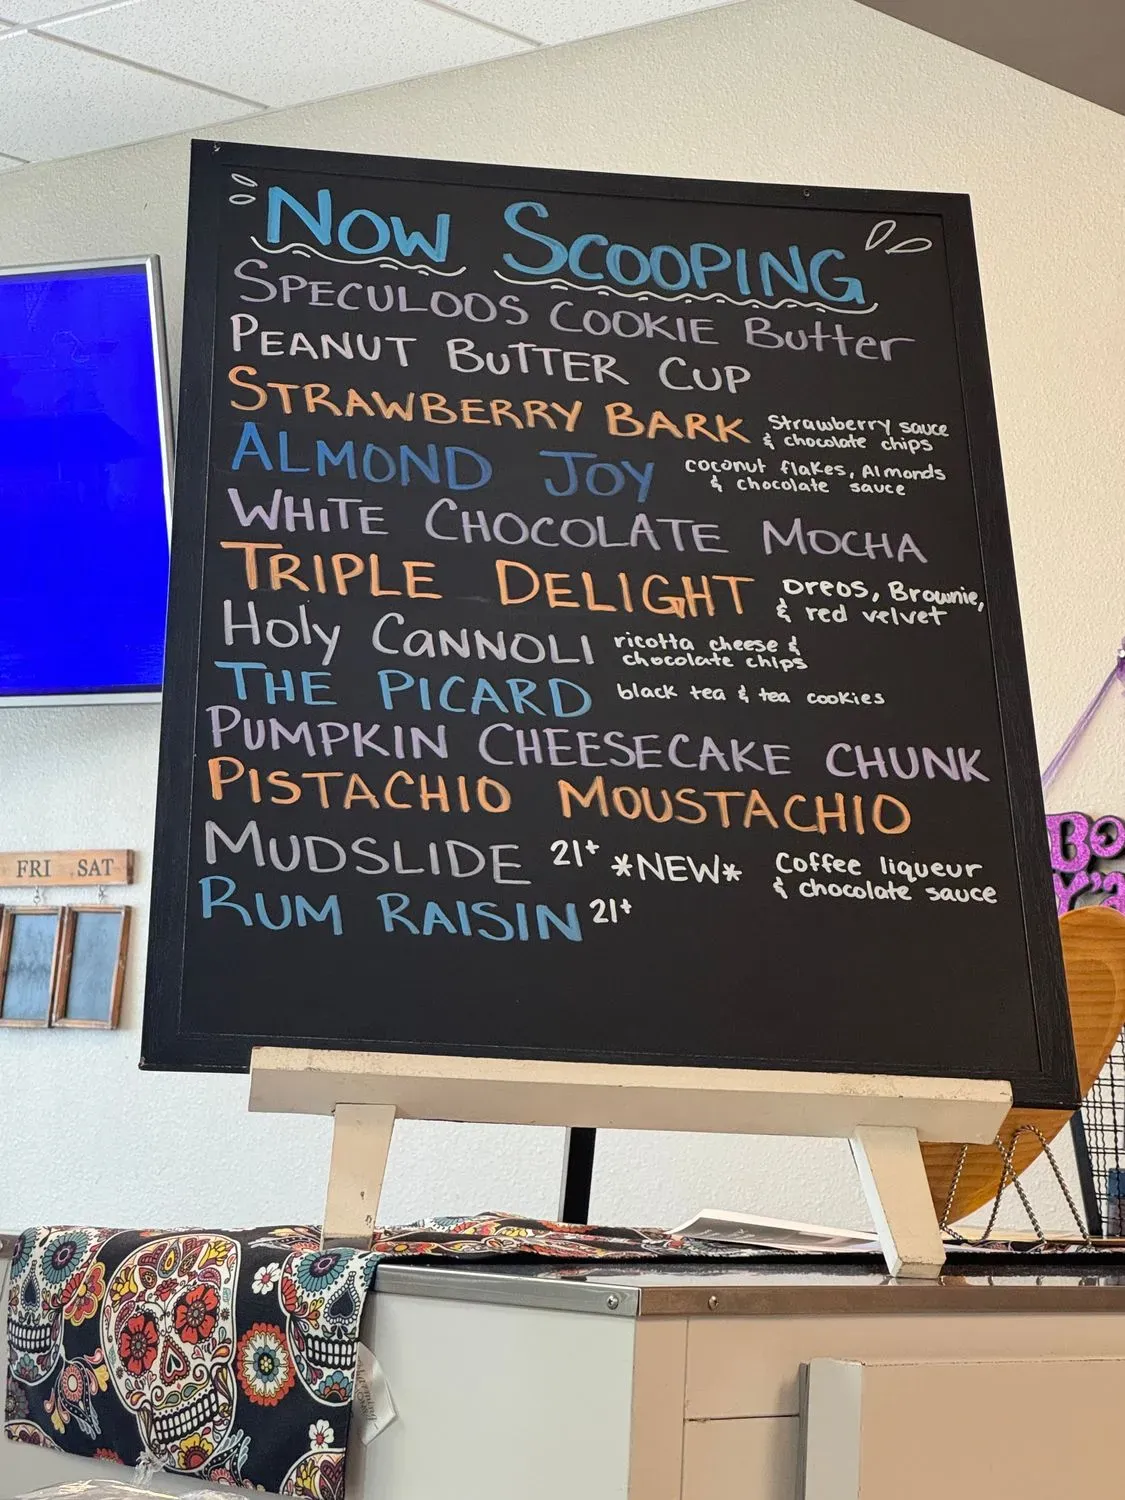 NOW SCOOPING
SPECULOOS COOKIE Butter
PEANUT BUTTER CUP
STRAWBERRY BARK strawberry sauce
& chocolate chips
ALMOND JOY coconut flakes, Almonds
& chocolate sauce
WHITE CHOCOLATE MOCHA
TRIPLE DELIGHT oreos, Brownie,
& red velvet
Holy CANNOLI ricotta cheese &
chocolate chips
THE PICARD black tea & tea cookies
PUMPKIN CHEESECAKE CHUNK
PISTACHIO MOUSTACHIO
MUDSLIDE 21+ *NEW* Coffee liqueur
& chocolate sauce
RUM RAISIN 21+
FRI SAT
BO